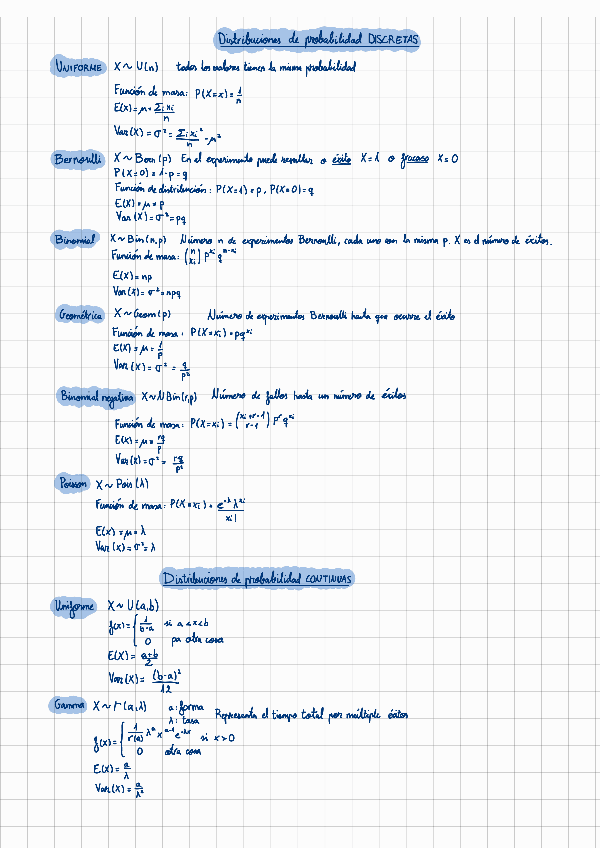 Distribuciones de probabilidad DISCRETAS
UNIFORME X ~ U(n) todos los valores tienen la misma probabilidad
Función de masa: P(X=x) = 1/n
E(X) = μ = Σᵢ xᵢ / n
Var(X) = σ² = Σᵢ xᵢ² / n - μ²
Bernoulli X ~ Bern(p) En el experimento puede resultar o éxito X=1 o fracaso X=0
P(X=0) = 1-p = q
Función de distribución: P(X=1) = p, P(X=0) = q
E(X) = μ = p
Var(X) = σ² = pq
Binomial X ~ Bin(n,p) Número n de experimentos Bernoulli, cada uno con la misma p. X es el número de éxitos.
Función de masa: (n xᵢ) p^xᵢ q^n-xᵢ
E(X) = np
Var(X) = σ² = npq
Geométrica X ~ Geom(p) Número de experimentos Bernoulli hasta que ocurre el éxito
Función de masa: P(X=xᵢ) = pq^xᵢ
E(X) = μ = 1/p
Var(X) = σ² = q/p²
Binomial negativa X ~ NBin(r,p) Número de fallos hasta un número de éxitos
Función de masa: P(X=xᵢ) = (xᵢ+r-1 r-1) p^r q^xᵢ
E(X) = μ = rq/p
Var(X) = σ² = rq/p²
Poisson X ~ Pois(λ)
Función de masa: P(X=xᵢ) = e^-λ λ^xᵢ / xᵢ!
E(X) = μ = λ
Var(X) = σ² = λ
Distribuciones de probabilidad CONTINUAS
Uniforme X ~ U(a,b)
f(x) = { 1/b-a si a<x<b
0 pa otra cosa
E(X) = a+b/2
Var(X) = (b-a)²/12
Gamma X ~ Γ(a,λ) a: forma
λ: tasa Representa el tiempo total por múltiple éxitos
f(x) = { 1/Γ(a) λ^a x^a-1 e^-λx si x>0
0 otra cosa
E(X) = a/λ
Var(X) = a/λ²